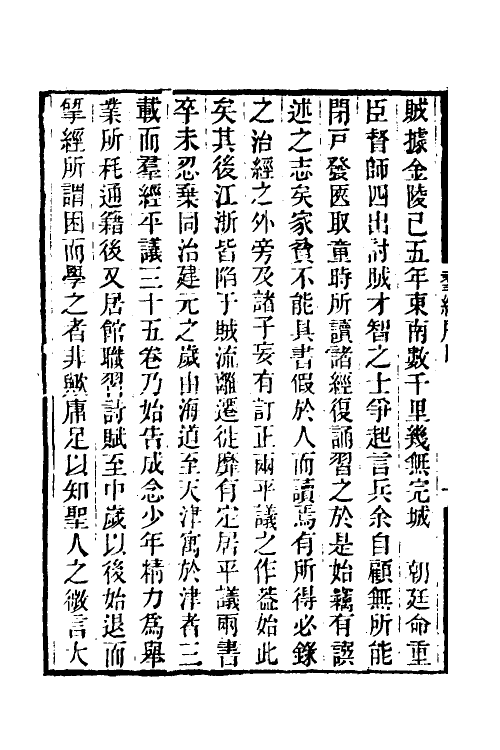 賊據金陵已五年東南數千里幾無完城　朝廷命重
臣督師四出討賊才智之士爭起言兵余自顧無所能
閉戸發匧取童時所讀諸經復誦習之於是始竊有譔
述之志矣家貧不能具書假於人而讀焉有所得必錄
之治經之外旁及諸子妄有訂正兩平議之作葢始此
矣其後江浙皆陷于賊流離遷徙靡有定居平議兩書
卒未忍棄同治建元之歲由海道至天津寓於津者三
載而羣經平議三十五卷乃始告成念少年精力爲舉
業所耗通籍後又居館職習詩賦至中歲以後始退而
孳經所謂困而學之者非歟庸足以知聖人之微言大